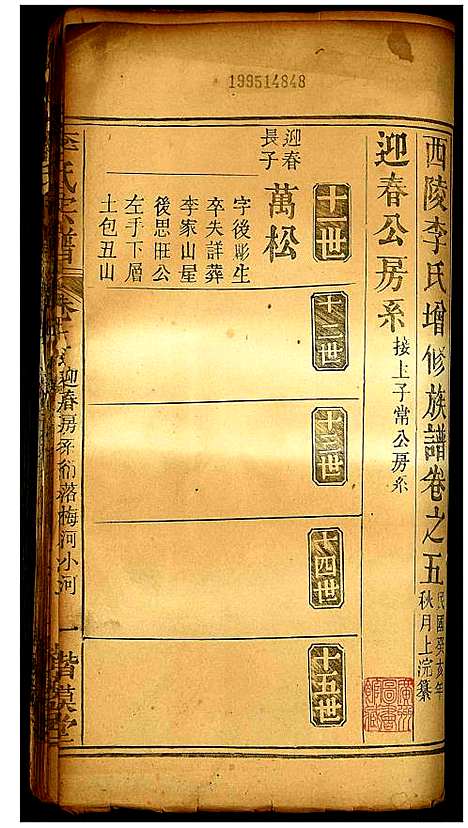 199514848
西陵李氏增修族譜卷之五
民國癸亥年
秋月上浣纂
迎春公房系
接上子常公房系
十一世
十二世
十三世
十四世
十五世
迎春
長子
萬松
字後彫生
卒失詳葬
李家山屋
後思旺公
左手下層
土包丑山
李氏宗譜
迎春房系
落梅河小河
一
堂